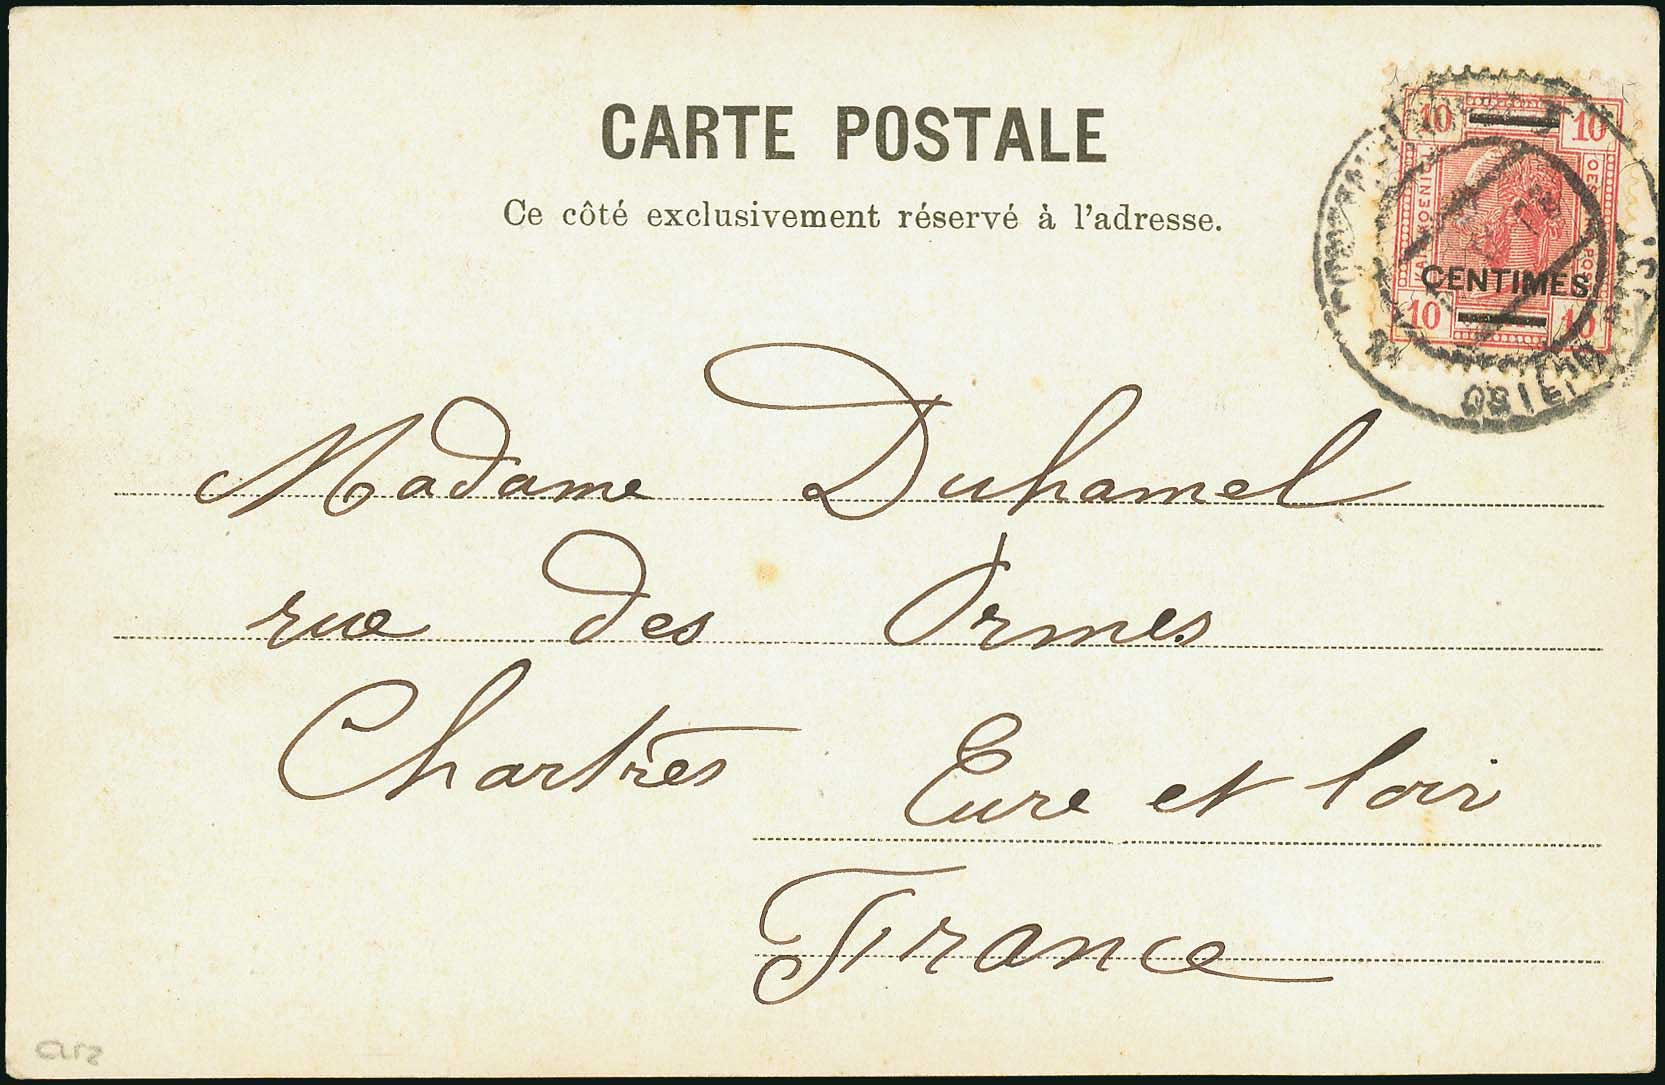 CARTE POSTALE
Ce côté exclusivement réservé à l'adresse.
10 10
CENTIMES
10 10
Madame Duhamel
rue des Ormes
Chartres Eure et loir
France